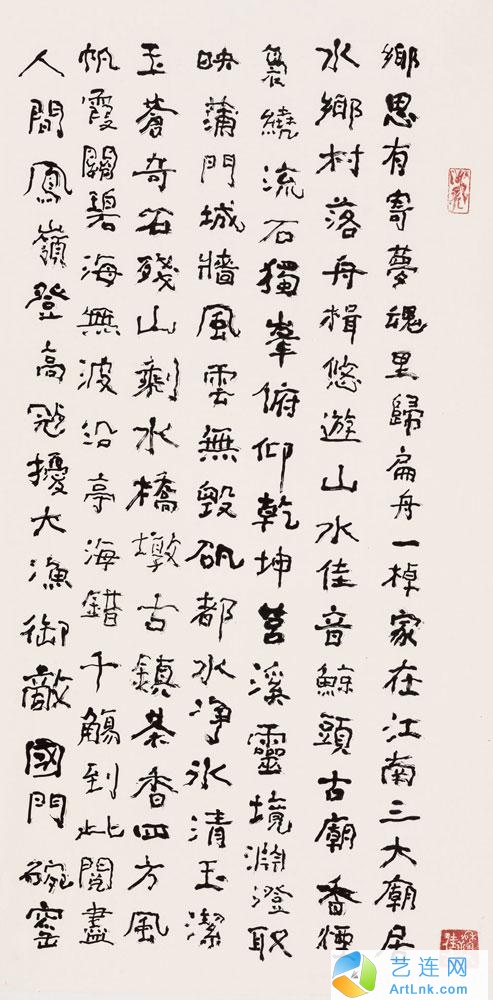 鄉思有寄夢魂里歸扁舟一棹家在江南三大廟居
水鄉村落舟楫悠遊山水佳音鯨頭古廟香煙
裊繞流石獨峯俯仰乾坤莒溪靈境淵澄取
映蒲門城牆風雲無毀矾都水净冰清玉潔
玉蒼奇石殘山剩水橋墩古鎮茶香四方風
帆霞關碧海無波沿亭海錯千觴到此閱盡
人間鳳嶺登高冦擾大漁御敵國門碗窑
艺连网
ArtLnk.com